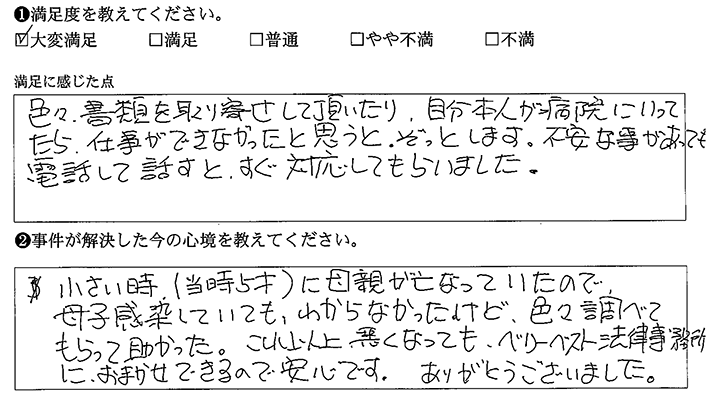 ❶満足度を教えてください。
☑大変満足 □満足 □普通 □やや不満 □不満
満足に感じた点
色々、書類を取り寄せして頂いたり、自分本人が病院にいって
たら、仕事ができなかったと思うと、ぞっとします。不安な事があっても
電話して話すと、すぐ対応してもらいました。
❷事件が解決した今の心境を教えてください。
小さい時、(当時5才)に母親が亡なっていたので、
母子感染していても、わからなかったけど、色々調べて
もらって助かった。これ以上悪くなっても、ベリーベスト法律事務所
に、おまかせできるので安心です。ありがとうございました。